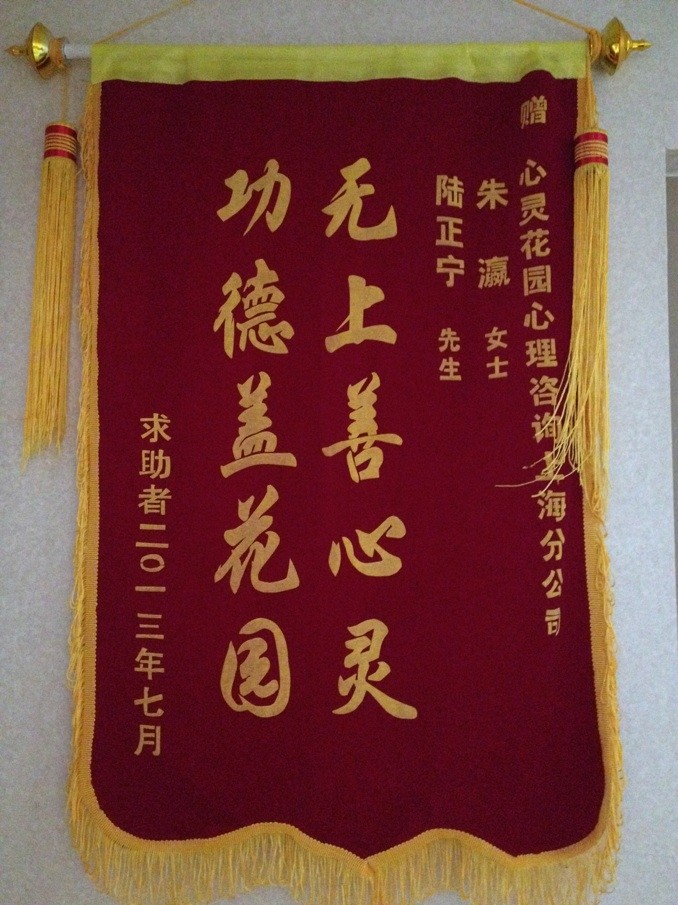 赠 心灵花园心理咨询上海分公司
朱瀛 女士
陆正宁 先生
无上善心灵
功德盖花园
求助者二〇一三年七月